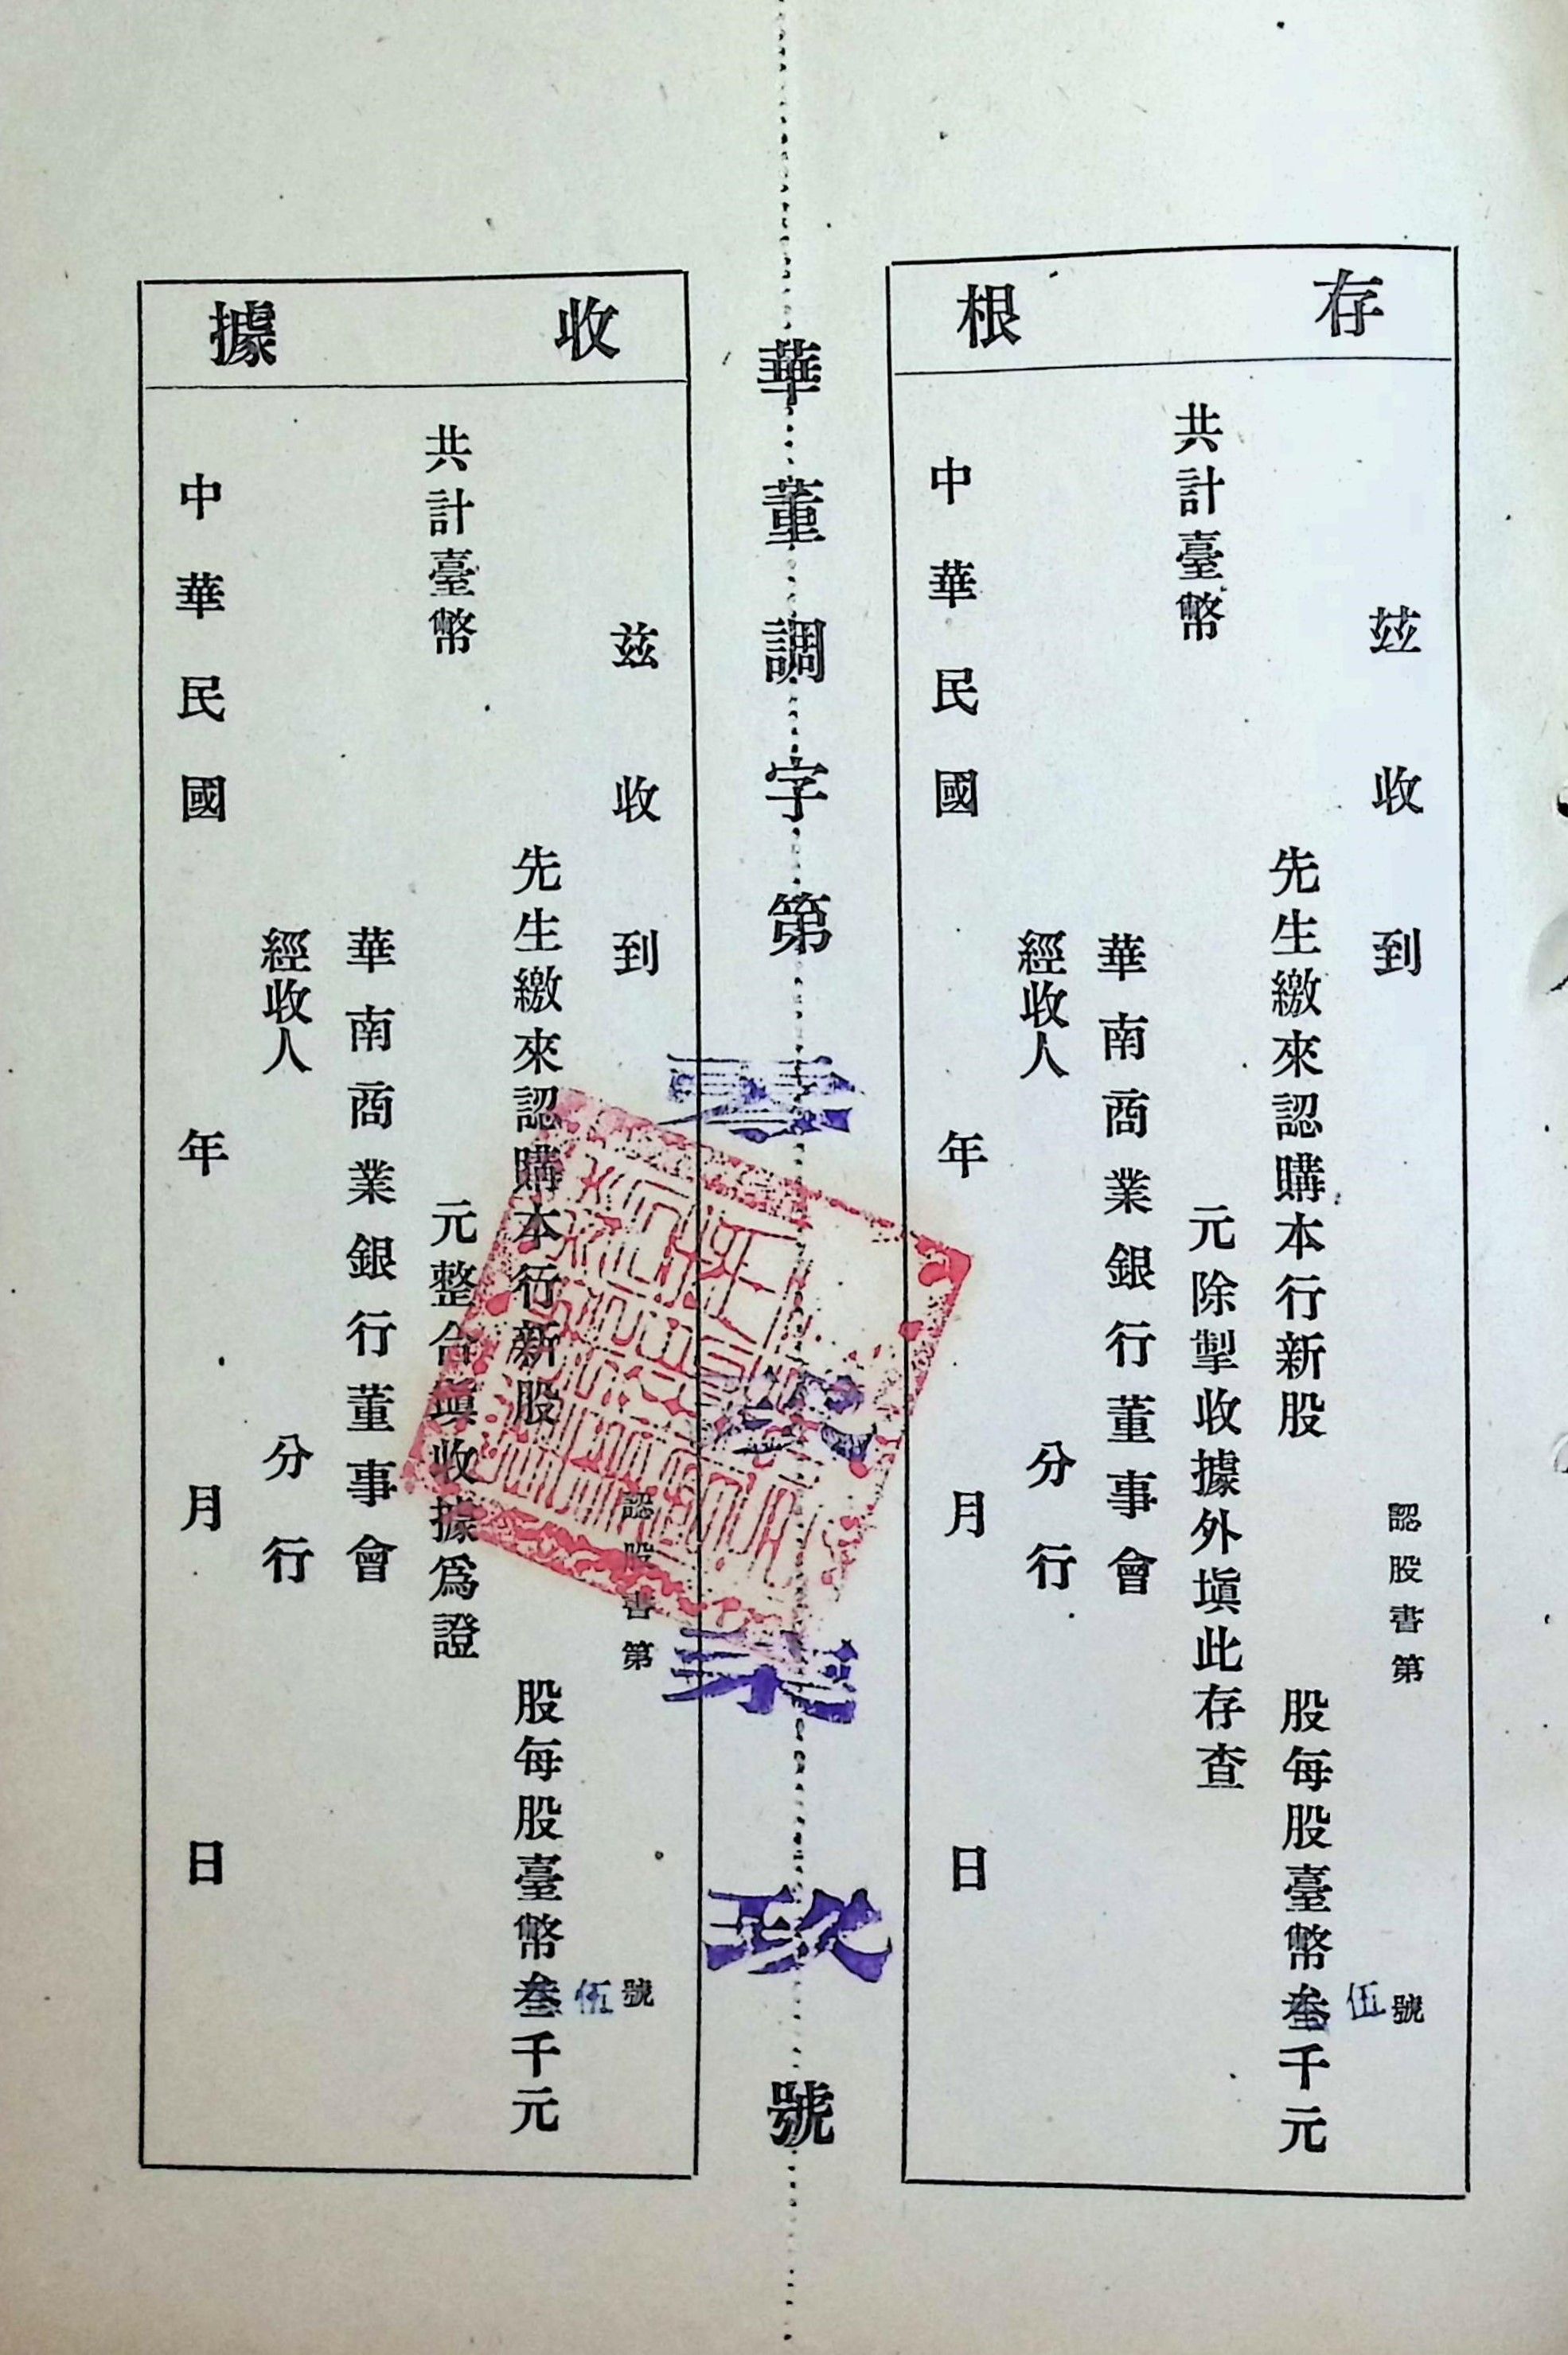 存根
茲收到
認股書第伍號
先生繳來認購本行新股 股每股臺幣叁千元
共計臺幣 元除掣收據外塡此存查
華南商業銀行董事會
經收人 分行
中華民國 年 月 日
華董調字第零 柒玖號
收據
茲收到
認股書第伍號
先生繳來認購本行新股 股每股臺幣叁千元
共計臺幣 元整合塡收據爲證
華南商業銀行董事會
經收人 分行
中華民國 年 月 日